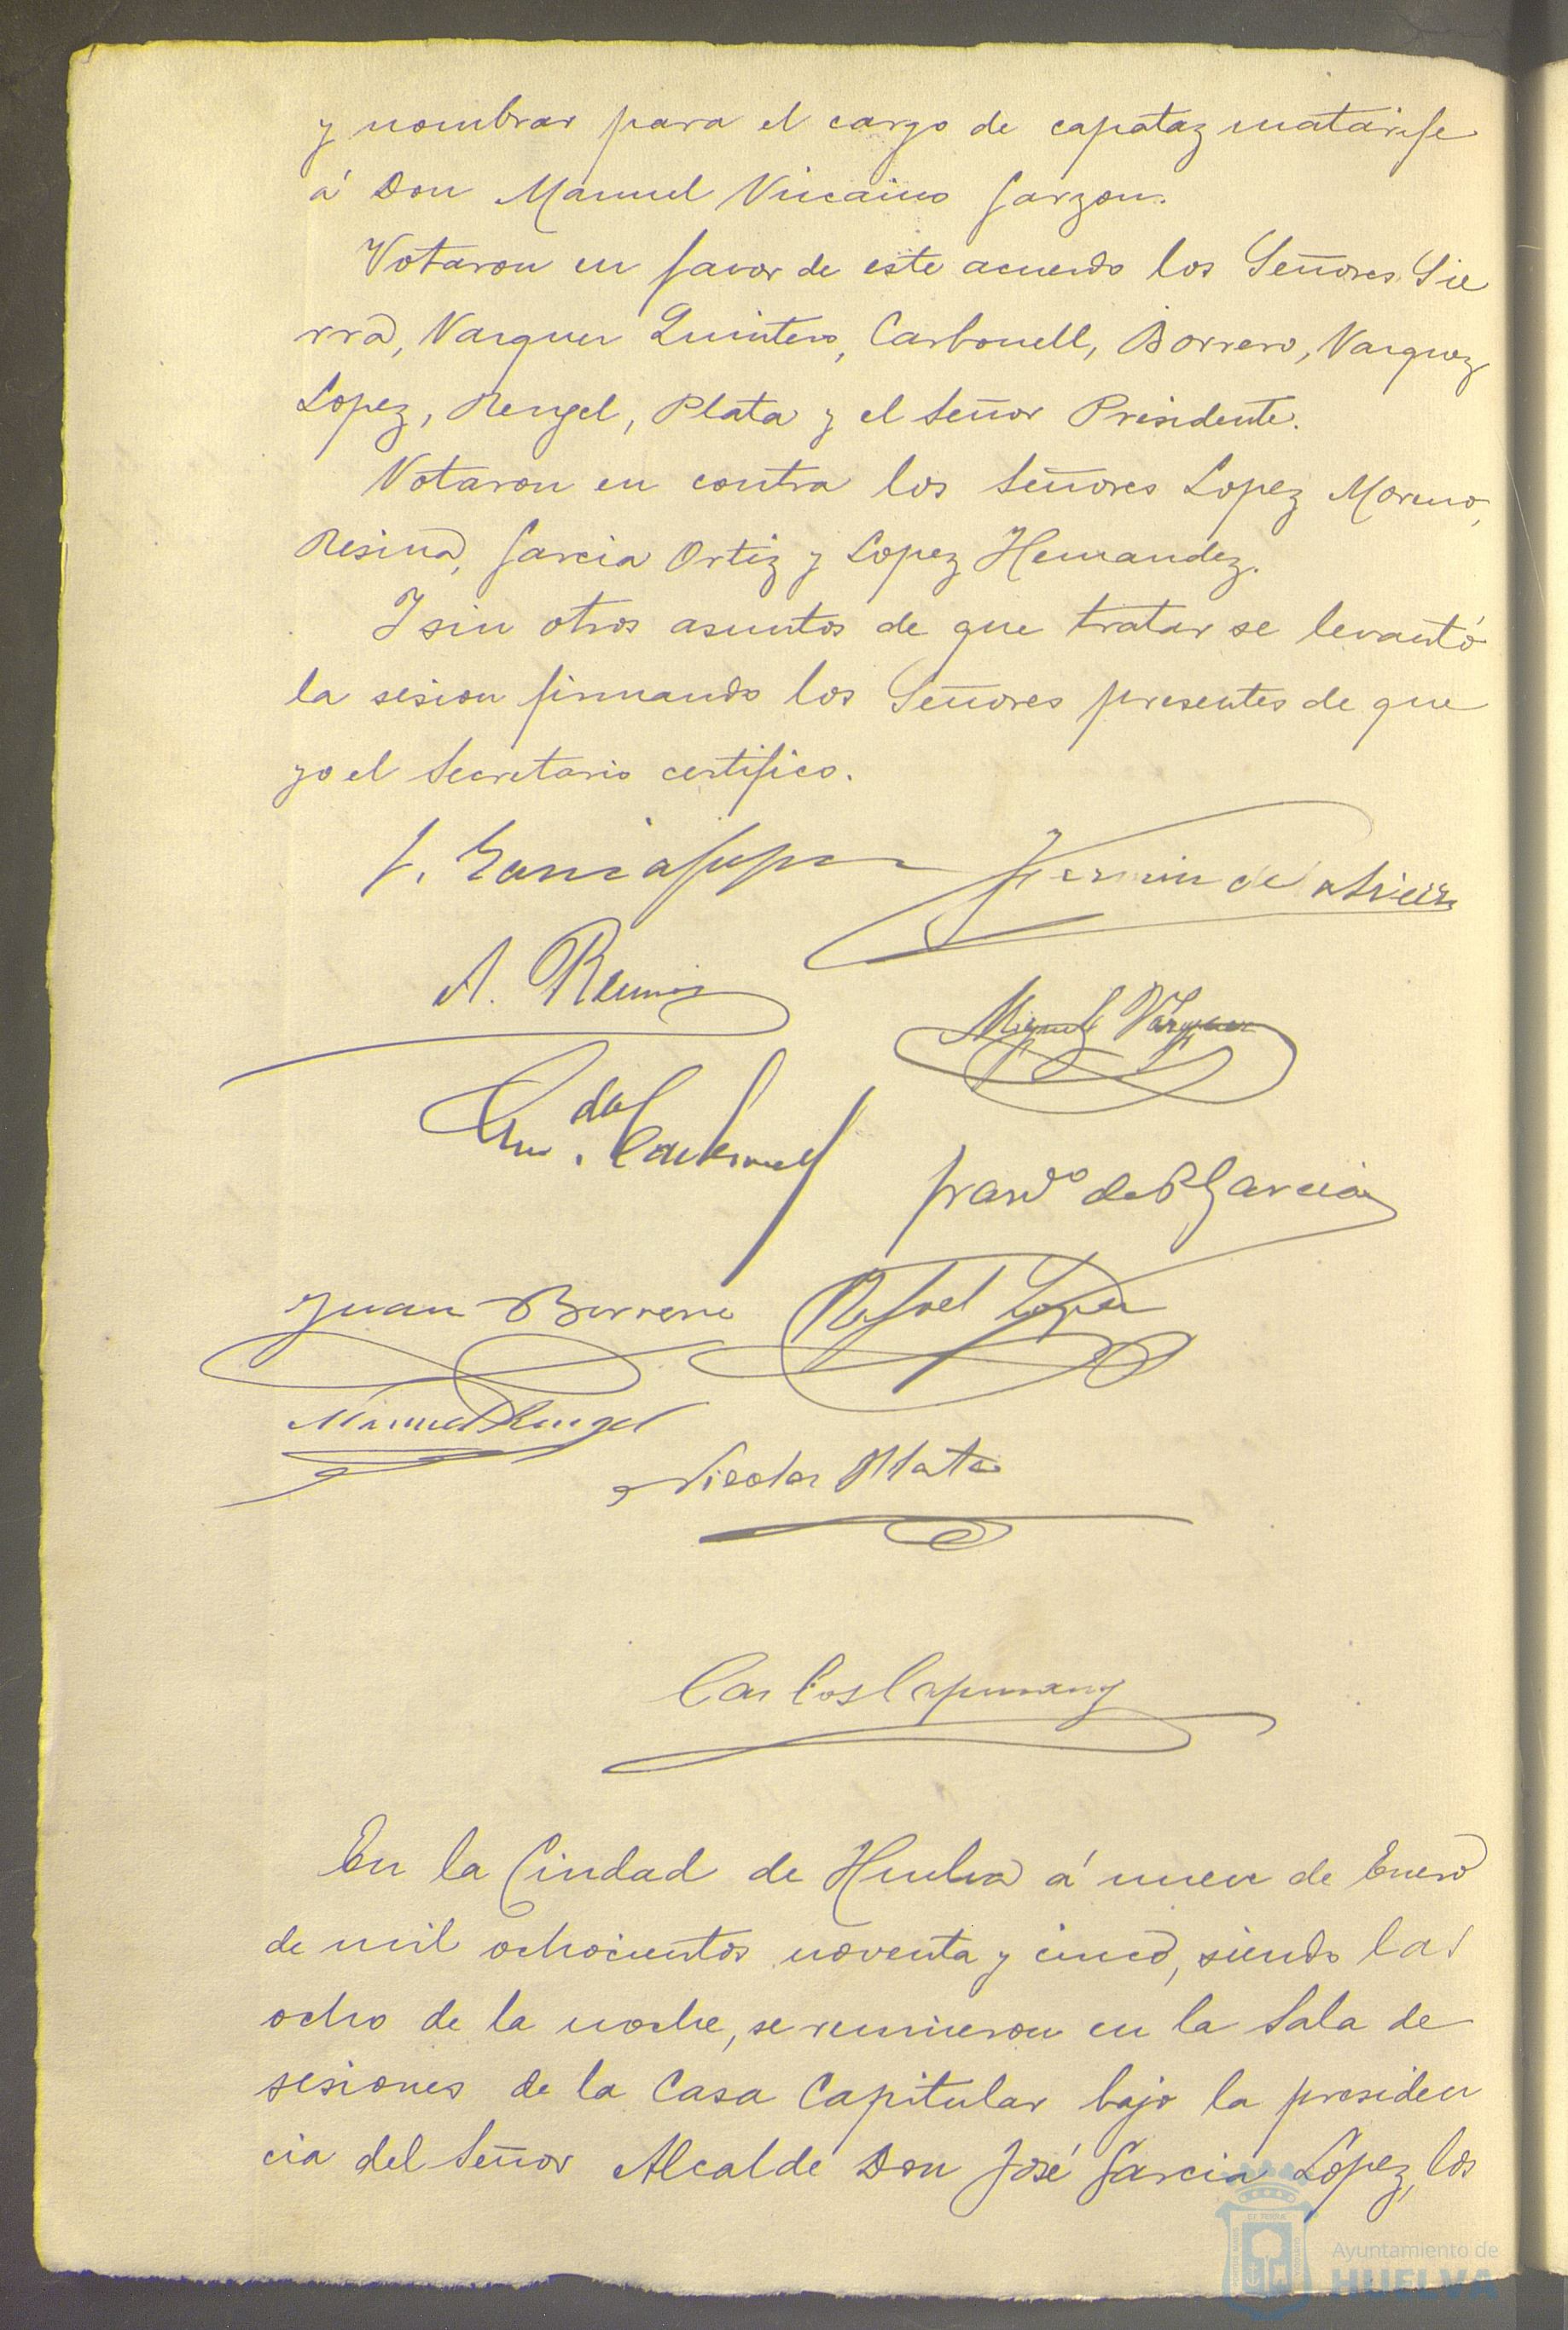 y nombrar para el cargo de capataz matarife
á Don Manuel Vizcaino Garzon.
Votaron en favor de este acuerdo los Señores Sie
rra, Vazquez Quintero, Carbonell, Borrero, Vazquez
Lopez, Rengel, Plata y el Señor Presidente.
Votaron en contra los Señores Lopez Moreno,
Resina, Garcia Ortiz y Lopez Hernandez.
Y sin otros asuntos de que tratar se levantó
la sesion firmando los Señores presentes de que
yo el Secretario certifico.
J. Garcia Lopez
Fermin de la Sierra
A.
Miguel Vazquez
Carbonell
Franco de P Garcia
Juan Borrero Rafael Lopez
Manuel Rengel
Nicolas Plata
Carlos Capmany
En la Ciudad de Huelva á nueve de Enero
de mil ochocientos noventa y cinco, siendo las
ocho de la noche, se reunieron en la Sala de
sesiones de la Casa Capitular bajo la presiden
cia del Señor Alcalde Don José Garcia Lopez, los
Ayuntamiento de
HUELVA